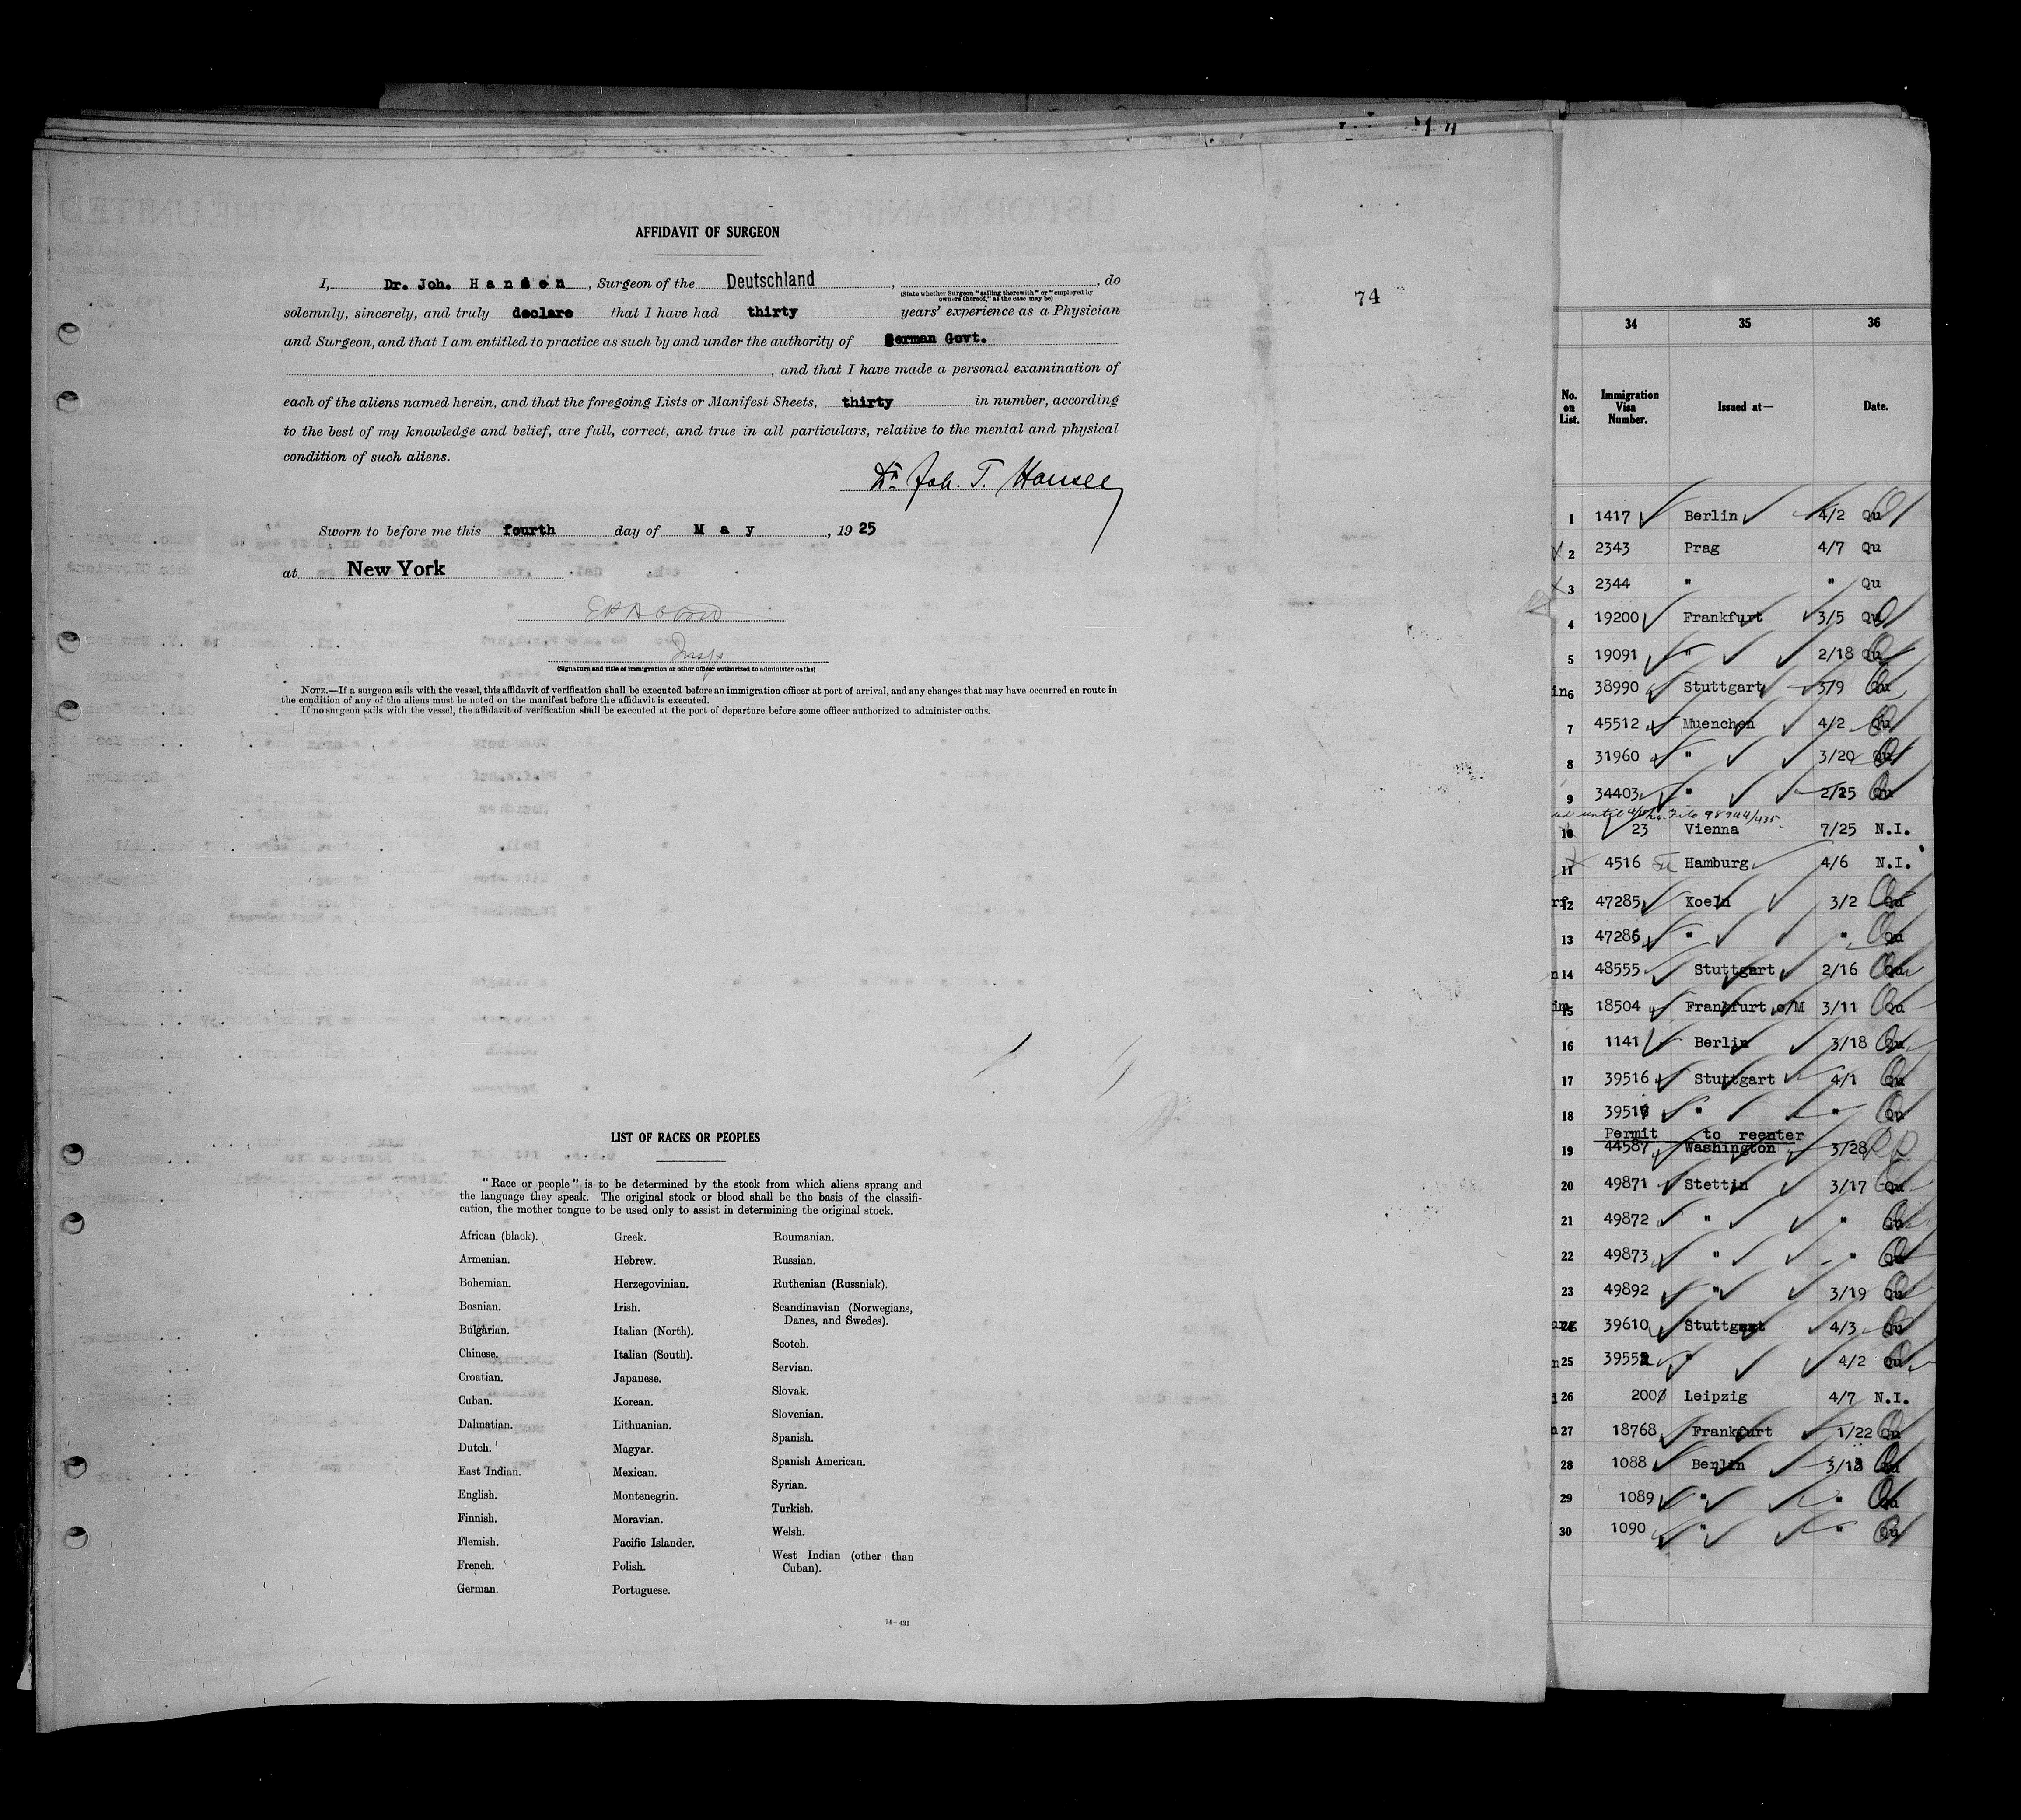 AFFIDAVIT OF SURGEON
I, Dr. Joh. Hansen, Surgeon of the Deutschland, , do
(State whether Surgeon "sailing therewith" or "employed by
owners thereof," as the case may be)
solemnly, sincerely, and truly declare that I have had thirty years' experience as a Physician
and Surgeon, and that I am entitled to practice as such by and under the authority of German Govt.
, and that I have made a personal examination of
each of the aliens named herein, and that the foregoing Lists or Manifest Sheets, thirty in number, according
to the best of my knowledge and belief, are full, correct, and true in all particulars, relative to the mental and physical
condition of such aliens.
Dr. Joh. T. Hansen
Sworn to before me this fourth day of May, 1925
at New York
Insp
(Signature and title of immigration or other officer authorized to administer oaths)
NOTE.—If a surgeon sails with the vessel, this affidavit of verification shall be executed before an immigration officer at port of arrival, and any changes that may have occurred en route in
the condition of any of the aliens must be noted on the manifest before the affidavit is executed.
If no surgeon sails with the vessel, the affidavit of verification shall be executed at the port of departure before some officer authorized to administer oaths.
74
LIST OF RACES OR PEOPLES
"Race or people" is to be determined by the stock from which aliens sprang and
the language they speak. The original stock or blood shall be the basis of the classifi-
cation, the mother tongue to be used only to assist in determining the original stock.
African (black).
Armenian.
Bohemian.
Bosnian.
Bulgarian.
Chinese.
Croatian.
Cuban.
Dalmatian.
Dutch.
East Indian.
English.
Finnish.
Flemish.
French.
German.
Greek.
Hebrew.
Herzegovinian.
Irish.
Italian (North).
Italian (South).
Japanese.
Korean.
Lithuanian.
Magyar.
Mexican.
Montenegrin.
Moravian.
Pacific Islander.
Polish.
Portuguese.
Roumanian.
Russian.
Ruthenian (Russniak).
Scandinavian (Norwegians,
Danes, and Swedes).
Scotch.
Servian.
Slovak.
Slovenian.
Spanish.
Spanish American.
Syrian.
Turkish.
Welsh.
West Indian (other than
Cuban).
14—431
34 35 36
No. on List. Immigration Visa Number. Issued at— Date.
1 1417 Berlin 4/2 Qu
2 2343 Prag 4/7 Qu
3 2344 " " Qu
4 19200 Frankfurt 3/5 Qu
5 19091 " 2/18 Qu
6 38990 Stuttgart 3/9 Qu
7 45512 Muenchen 4/2 Qu
8 31960 " 3/20 Qu
9 34403 " 2/25 Qu
until File 98944/435
10 23 Vienna 7/25 N.I.
11 4516 Hamburg 4/6 N.I.
12 47285 Koeln 3/2 Qu
13 47286 " " Qu
14 48555 Stuttgart 2/16 Qu
15 18504 Frankfurt o/M 3/11 Qu
16 1141 Berlin 3/18 Qu
17 39516 Stuttgart 4/1 Qu
18 39517 " " Qu
Permit to reenter
19 44587 Washington 3/28
20 49871 Stettin 3/17 Qu
21 49872 " " Qu
22 49873 " " Qu
23 49892 " 3/19 Qu
24 39610 Stuttgart 4/3 Qu
25 39552 " 4/2 Qu
26 200 Leipzig 4/7 N.I.
27 18768 Frankfurt 1/22 Qu
28 1088 Berlin 3/13 Qu
29 1089 " " Qu
30 1090 " " Qu